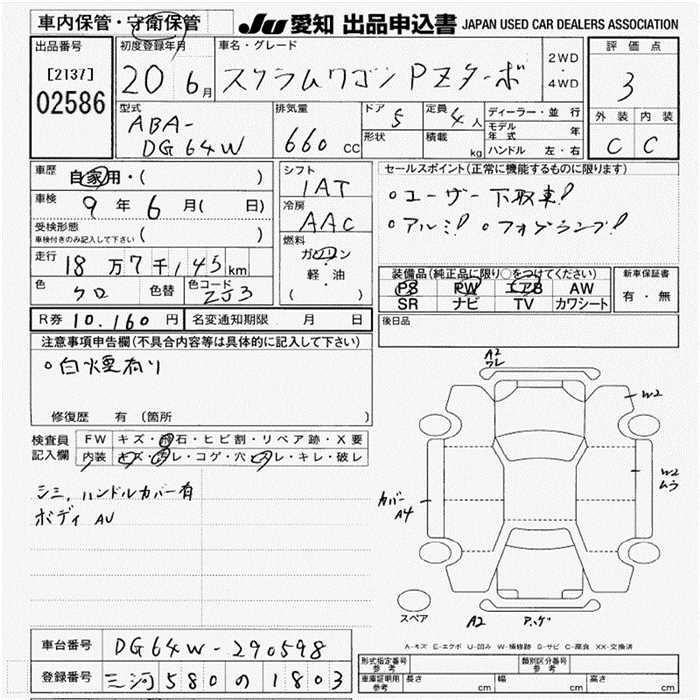 車内保管・守衛保管 JU 愛知 出品申込書 JAPAN USED CAR DEALERS ASSOCIATION
出品番号 [2137] 02586
初度登録年月 20 6月
車名・グレード スクラムワゴン PZターボ
2WD ・ 4WD
評価点 3
外装 内装
C C
型式 ABA-DG64W
排気量 660 CC
ドア 5
形状
定員 4人
積載 kg
ディーラー・並行
モデル年式 年
ハンドル 左・右
車歴 自家用・( )
車検 9年 6月( 日)
受検形態 車検付きのみ記入して下さい ( )
走行 18万7千,145km
色 クロ 色替 色コード ZJ3
シフト IAT
冷房 AAC
燃料 ガソリン
軽・油
( )
セールスポイント(正常に機能するものに限ります)
○ユーザー下取車!
○アルミ! ○フォグランプ!
装備品(純正品に限り○をつけてください)
PS PW エアB AW
SR ナビ TV カワシート
新車保証書
有・無
R券 10,160円 名変通知期限 月 日
後日品
注意事項申告欄(不具合内容等は具体的に記入して下さい)
○白煙有り
修復歴 有 (箇所 )
検査員記入欄
FW キズ・飛石・ヒビ割・リペア跡・X要
内装 キズ・汚レ・コゲ・穴・スレ・キレ・破レ
シミ,ハンドルカバー有
ボディ AU
A2
ワレ
W2
W2
ムラ
カバー
A4
スペア
A2
A-キズ E-エクボ U-凹み W-補修跡 S-サビ C-腐食 XX-交換済
車台番号 DG64W-290598
登録番号 三河580の1803
形式指定番号 参考
類別区分番号 参考
車庫証明用 参考 長さ cm 幅 cm 高さ cm